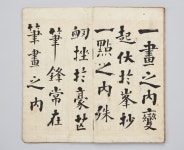 一畫之内變
起伏於峯杪
一點之内殊
衂挫於豪芒
筆鋒常在
筆畫之内